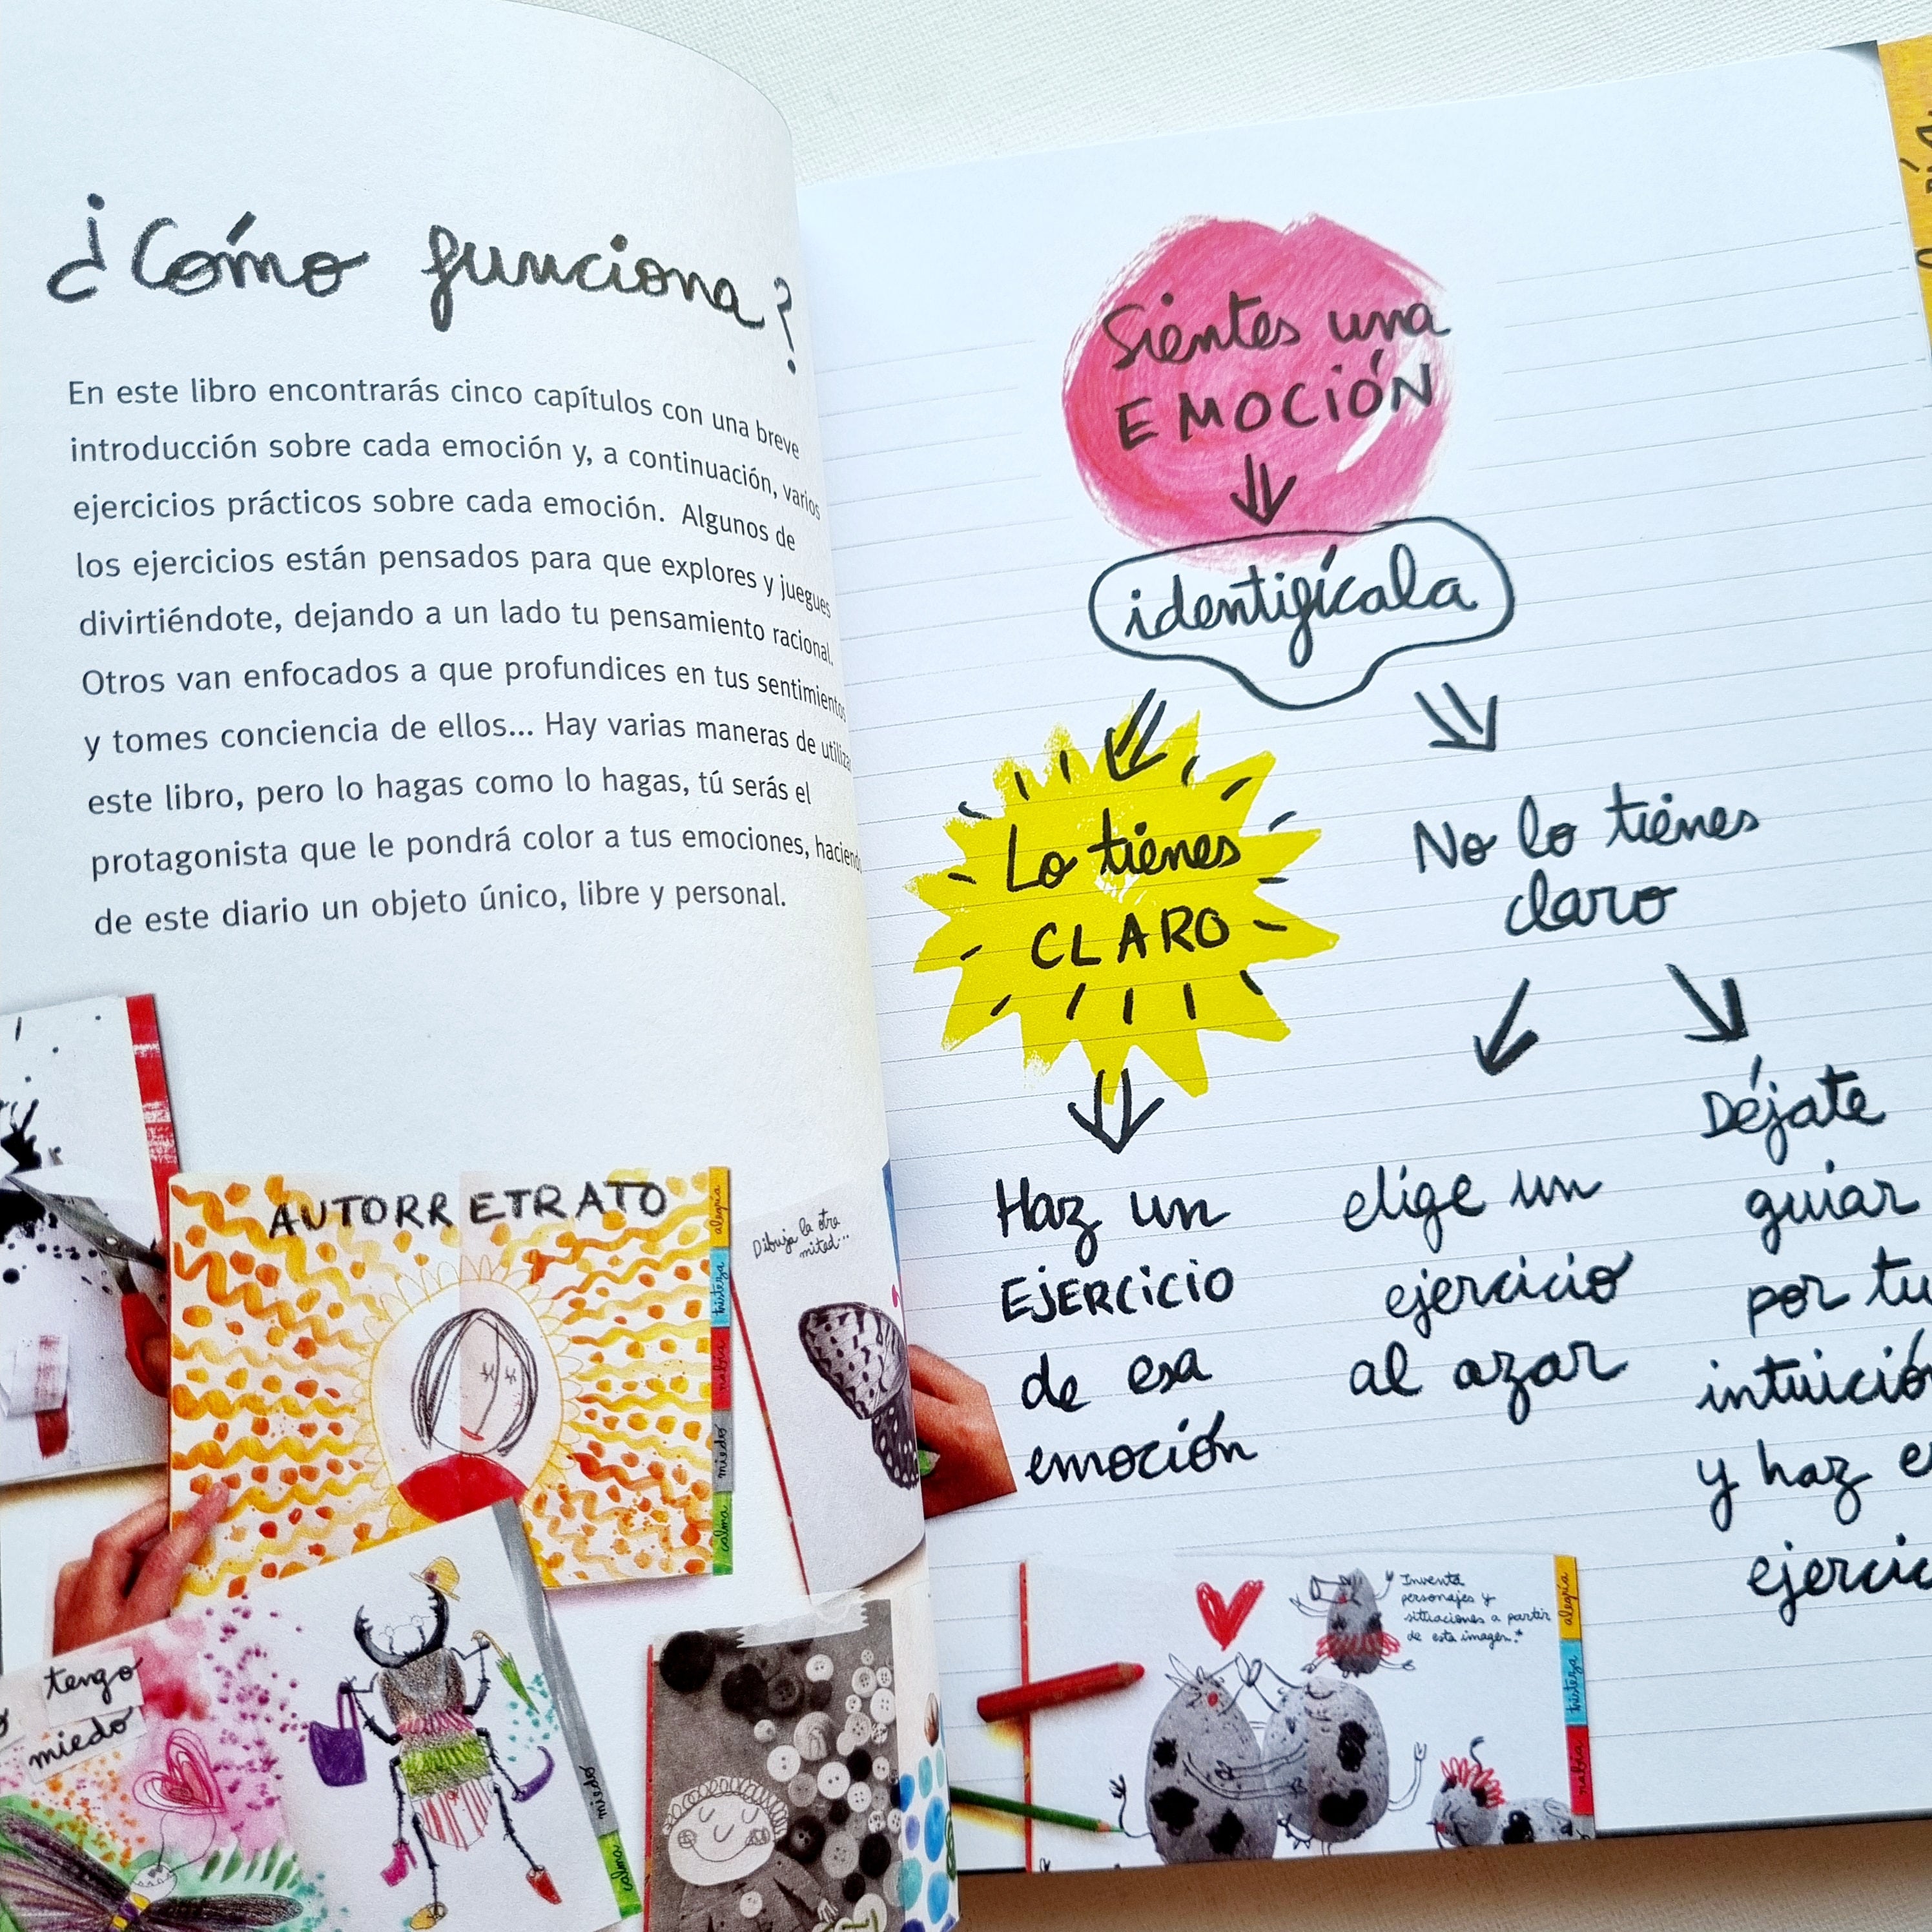 ¿Cómo funciona?
En este libro encontrarás cinco capítulos con una breve
introducción sobre cada emoción y, a continuación, varios
ejercicios prácticos sobre cada emoción. Algunos de
los ejercicios están pensados para que explores y juegues
divirtiéndote, dejando a un lado tu pensamiento racional.
Otros van enfocados a que profundices en tus sentimientos
y tomes conciencia de ellos... Hay varias maneras de utiliza
este libro, pero lo hagas como lo hagas, tú serás el
protagonista que le pondrá color a tus emociones, haciendo
de este diario un objeto único, libre y personal.
AUTORRETRATO
alegría
tristeza
rabia
miedo
calma
Dibuja la otra
mitad...
tengo
miedo
miedo
calma
Sientes una
EMOCIÓN
identifícala
Lo tienes
CLARO
No lo tienes
claro
Haz un
EJERCICIO
de esa
emoción
elige un
ejercicio
al azar
Déjate
guiar
por tu
intuición
y haz e
ejercic
Inventa
personajes y
situaciones a partir
de esta imagen.*
alegría
tristeza
rabia